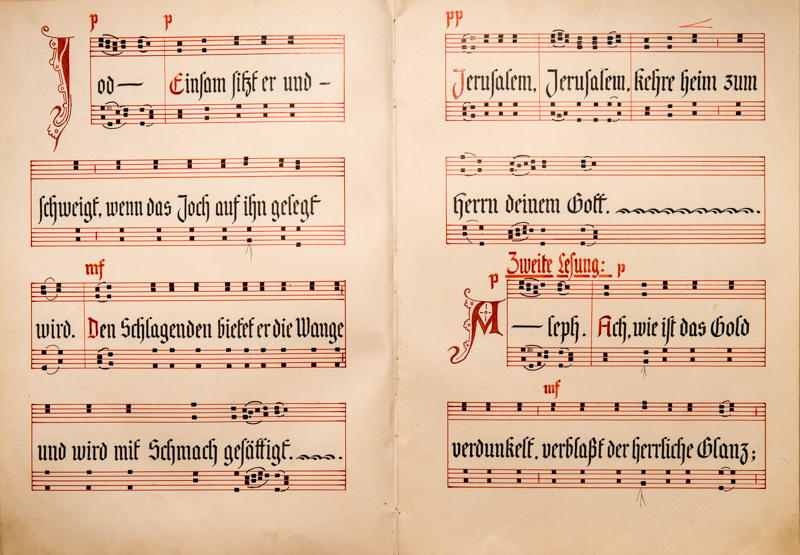 p p
Jod— Einsam sitzt er und –
schweigt, wenn das Joch auf ihn gelegt
mf
wird. Den Schlagenden bietet er die Wange
und wird mit Schmach gesättigt.
pp
Jerusalem, Jerusalem, kehre heim zum
Herrn deinem Gott.
Zweite Lesung:
p p
A—leph. Ach, wie ist das Gold
mf
verdunkelt, verblaßt der herrliche Glanz;